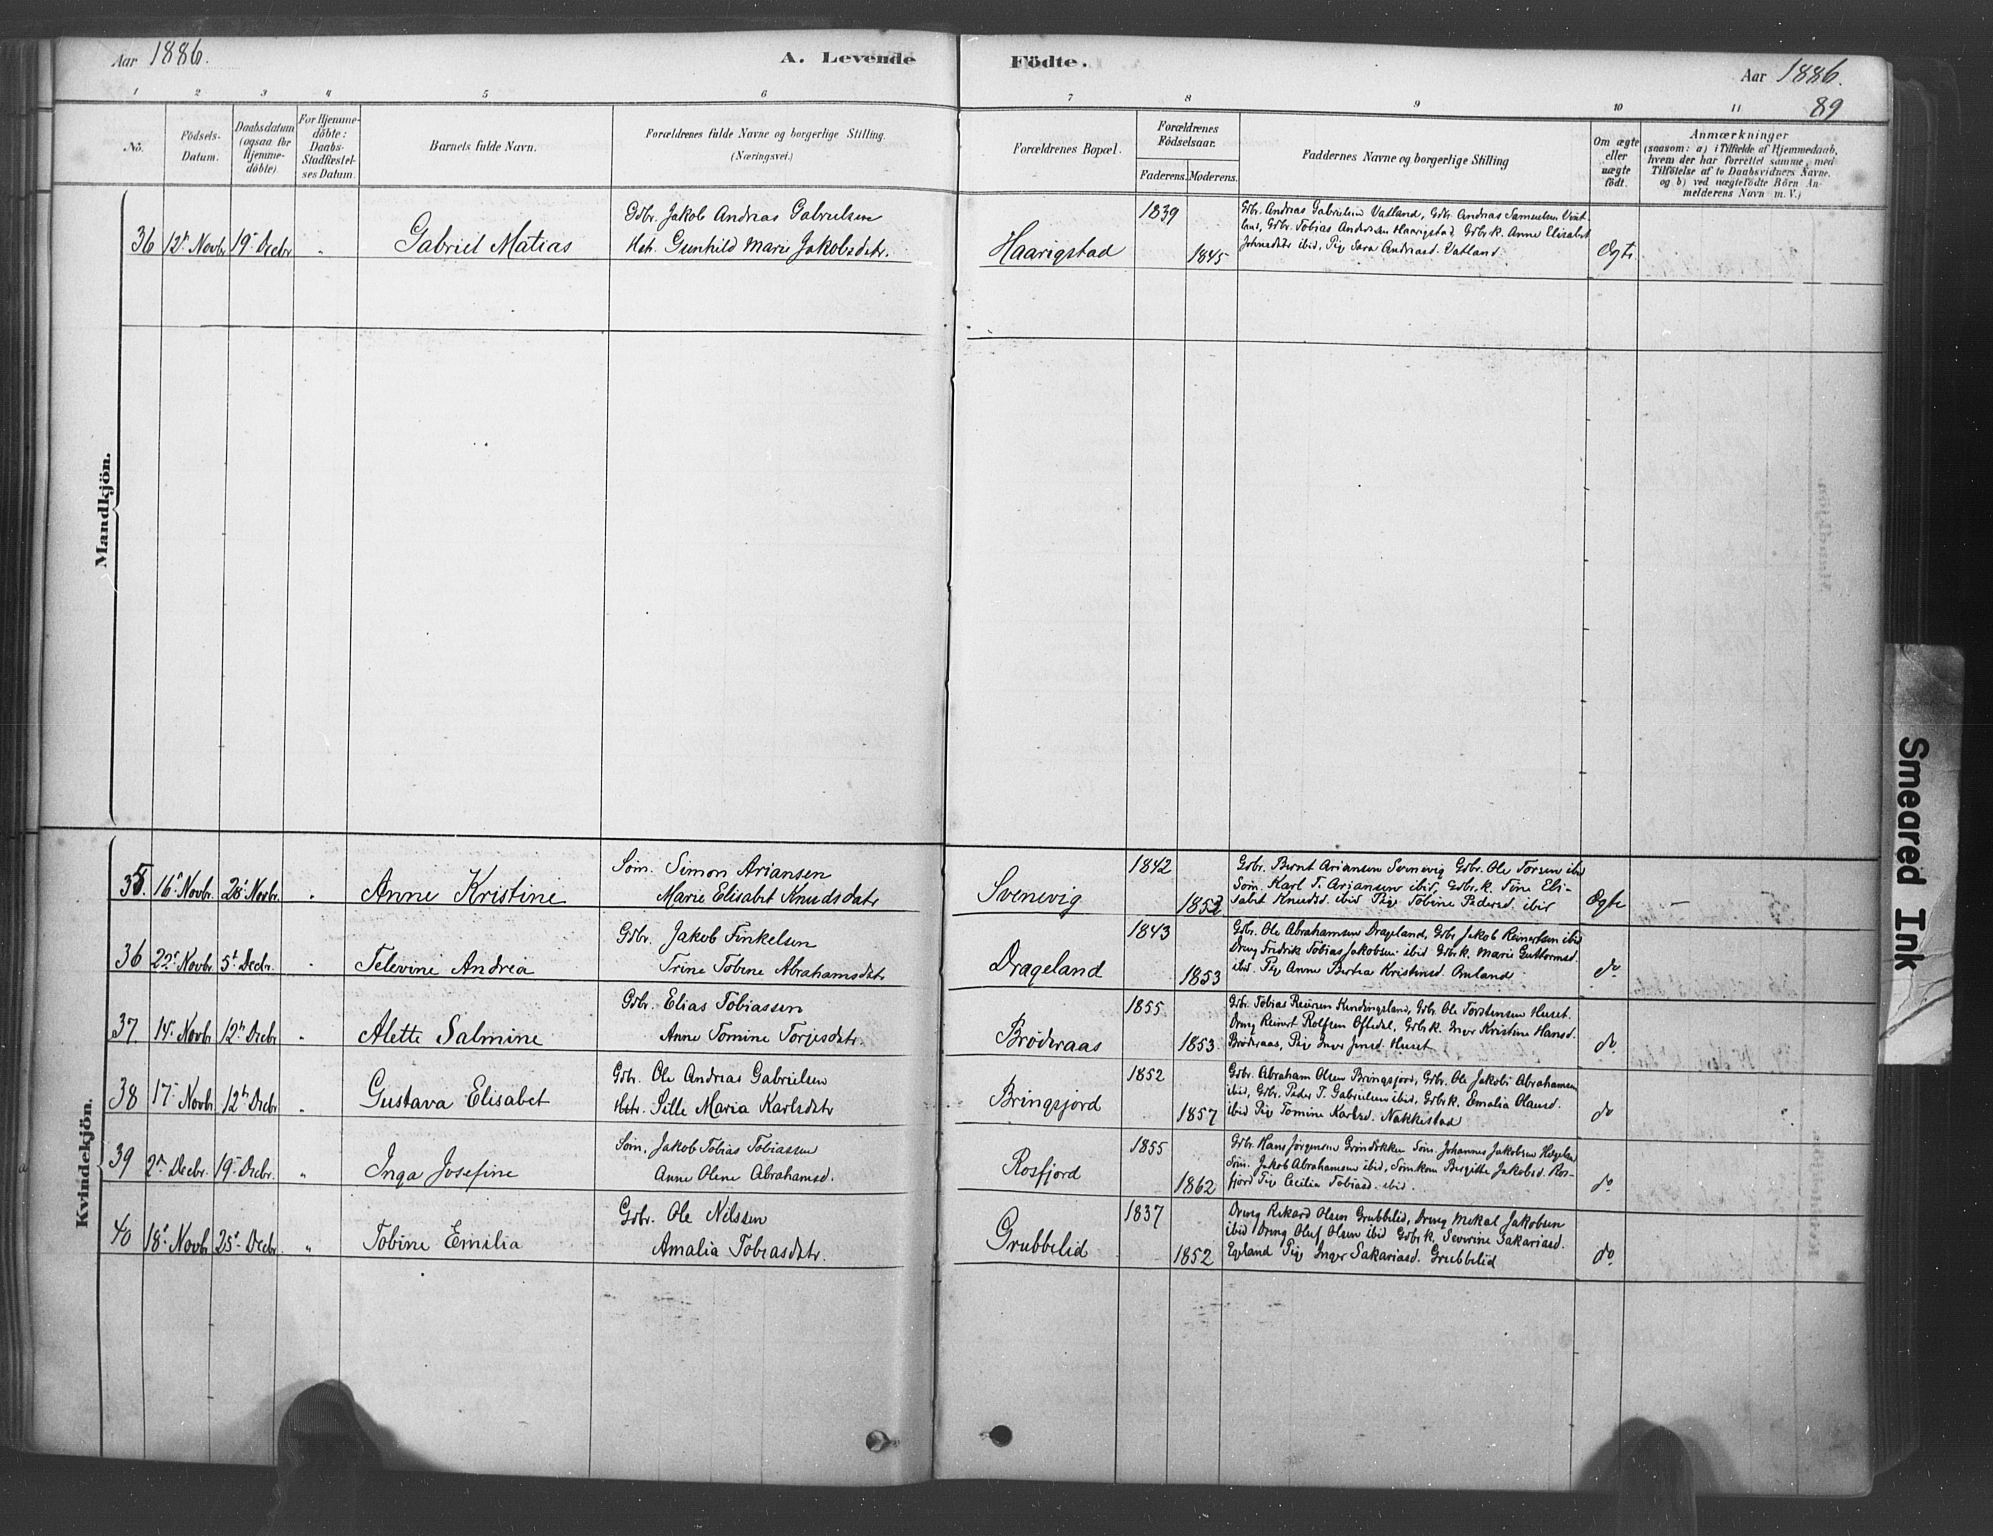 Aar 1886.
A. Levende
Födte.
Aar 1886.
89
1 2 3 4 5 6 7 8 9 10 11
No.
Födsels-
Datum.
Daabsdatum
(ogsaa for
Hjemme-
döbte)
For Hjemme-
döbte:
Daabs-
Stadfæstel-
ses Datum.
Barnets fulde Navn.
Forældrenes fulde Navne og borgerlige Stilling.
(Næringsvei.)
Forældrenes Bopæl.
Forældrenes
Födselsaar.
Faderens. Moderens.
Faddernes Navne og borgerlige Stilling
Om ægte
eller
uægte
födt.
Anmærkninger
(saasom: a) i Tilfælde af Hjemmedaab,
hvem der har forrettet samme, med
Tilföielse af to Daabsvidners Navne,
og b) ved uægtefödte Börn An-
melderens Navn m. V.)
Mandkjön.
36 12te Novbr 19de Decbr "
Gabriel Matias
Gdbr. Jakob Andreas Gabrielsen
Hst. Gunhild Marie Jakobsdatr.
Haarigstad
1839
1845
Gdbr. Andreas Gabrielsen Vatland, Gdbr. Andreas Samuelsen
Gdbr. Tobias Andersen Haarigstad Gdbr.k. Anne Elisabet
ibid, Pige Sara Andreasd. Vatland.
Ægte
Kvindekjön.
35. 16de Novbr. 28de Novbr. "
Anne Kristine
Søm. Simon Ariansen
Marie Elisabet Knudsdatr
Svenevig
1842
1852
Gdbr. Bernt Ariansen Svenevig Gdbr. Ole Torsen ibid
Søm. Karl T. Ariansen ibid, Gdbr.k. Tine Eli-
sabet Knudsd. ibid Pige Tobine Pedersd. ibid
Ægte
—
36 22de Novbr 5te Decbr. "
Televine Andrea
Gdbr. Jakob Finkelsen
Trine Tobine Abrahamsdatr
Drageland
1843
1853
Gdbr. Ole Abrahamsen Drageland, Gdbr Jakob Reinertsen ibid
Dreng Fredrik Tobias Jakobsen ibid Gdbr.k. Marie Guttormsd.
ibid. Pige Anne Bertea Kristinsd.
do
37 14de Novbr 12te Decbr "
Alette Salmine
Gdbr. Elias Tobiassen
Anne Tomine Torjesdatr.
Bröderaas
1855
1853.
Gdbr. Tobias Reiersen Kundingsland, Gdbr. Ole Torstensen Huset.
Dreng Reinert Rolfsen Oftedal, Gdbr.k. Inger Kristine Hansd.
Bröderaas, Pige Inger Jensd. Huset
do
38 17de Novbr 12te Decbr "
Gustava Elisabet
Gdbr. Ole Andreas Gabrielsen
Hstr. Sille Maria Karlsdatr
Bringsjord
1852
1857
Gdbr. Abraham Olsen Bringsjord, Gdbr. Ole Jakob Abrahamsen
ibid, Gdbr. Peder T. Gabrielsen ibid, Gdbr.k. Emalia Olausd.
ibid Pige Tomine Karlsd. Nakkestad
do
39 2den Decbr. 19de Decbr. "
Inga Josefine
Søm. Jakob Tobias Tobiassen
Anne Olene Abrahamsd.
Rosfjord
1855
1862
Gdbr. Hans Jörgensen Gröndokken Søm. Johannes Jakobsen
Søm. Jakob Abrahamsen ibid, Sømkone Birgitte Jakobsd. Ros-
fjord Pige Cecilia Tobiasd. ibid.
do
40 18de Novbr 25de Decbr. "
Tobine Emilia
Gdbr. Ole Nilssen
Amalia Tobiasdatr.
Grubbelid
1837
1852
Dreng Rikard Olsen Grubbelid, Dreng Mekal Jakobsen
ibid Dreng Oluf Olsen ibid Gdbr.k. Severine Sakariasd.
Egeland Pige Inger Sakariasd. Grubbelid
do
Smeared Ink